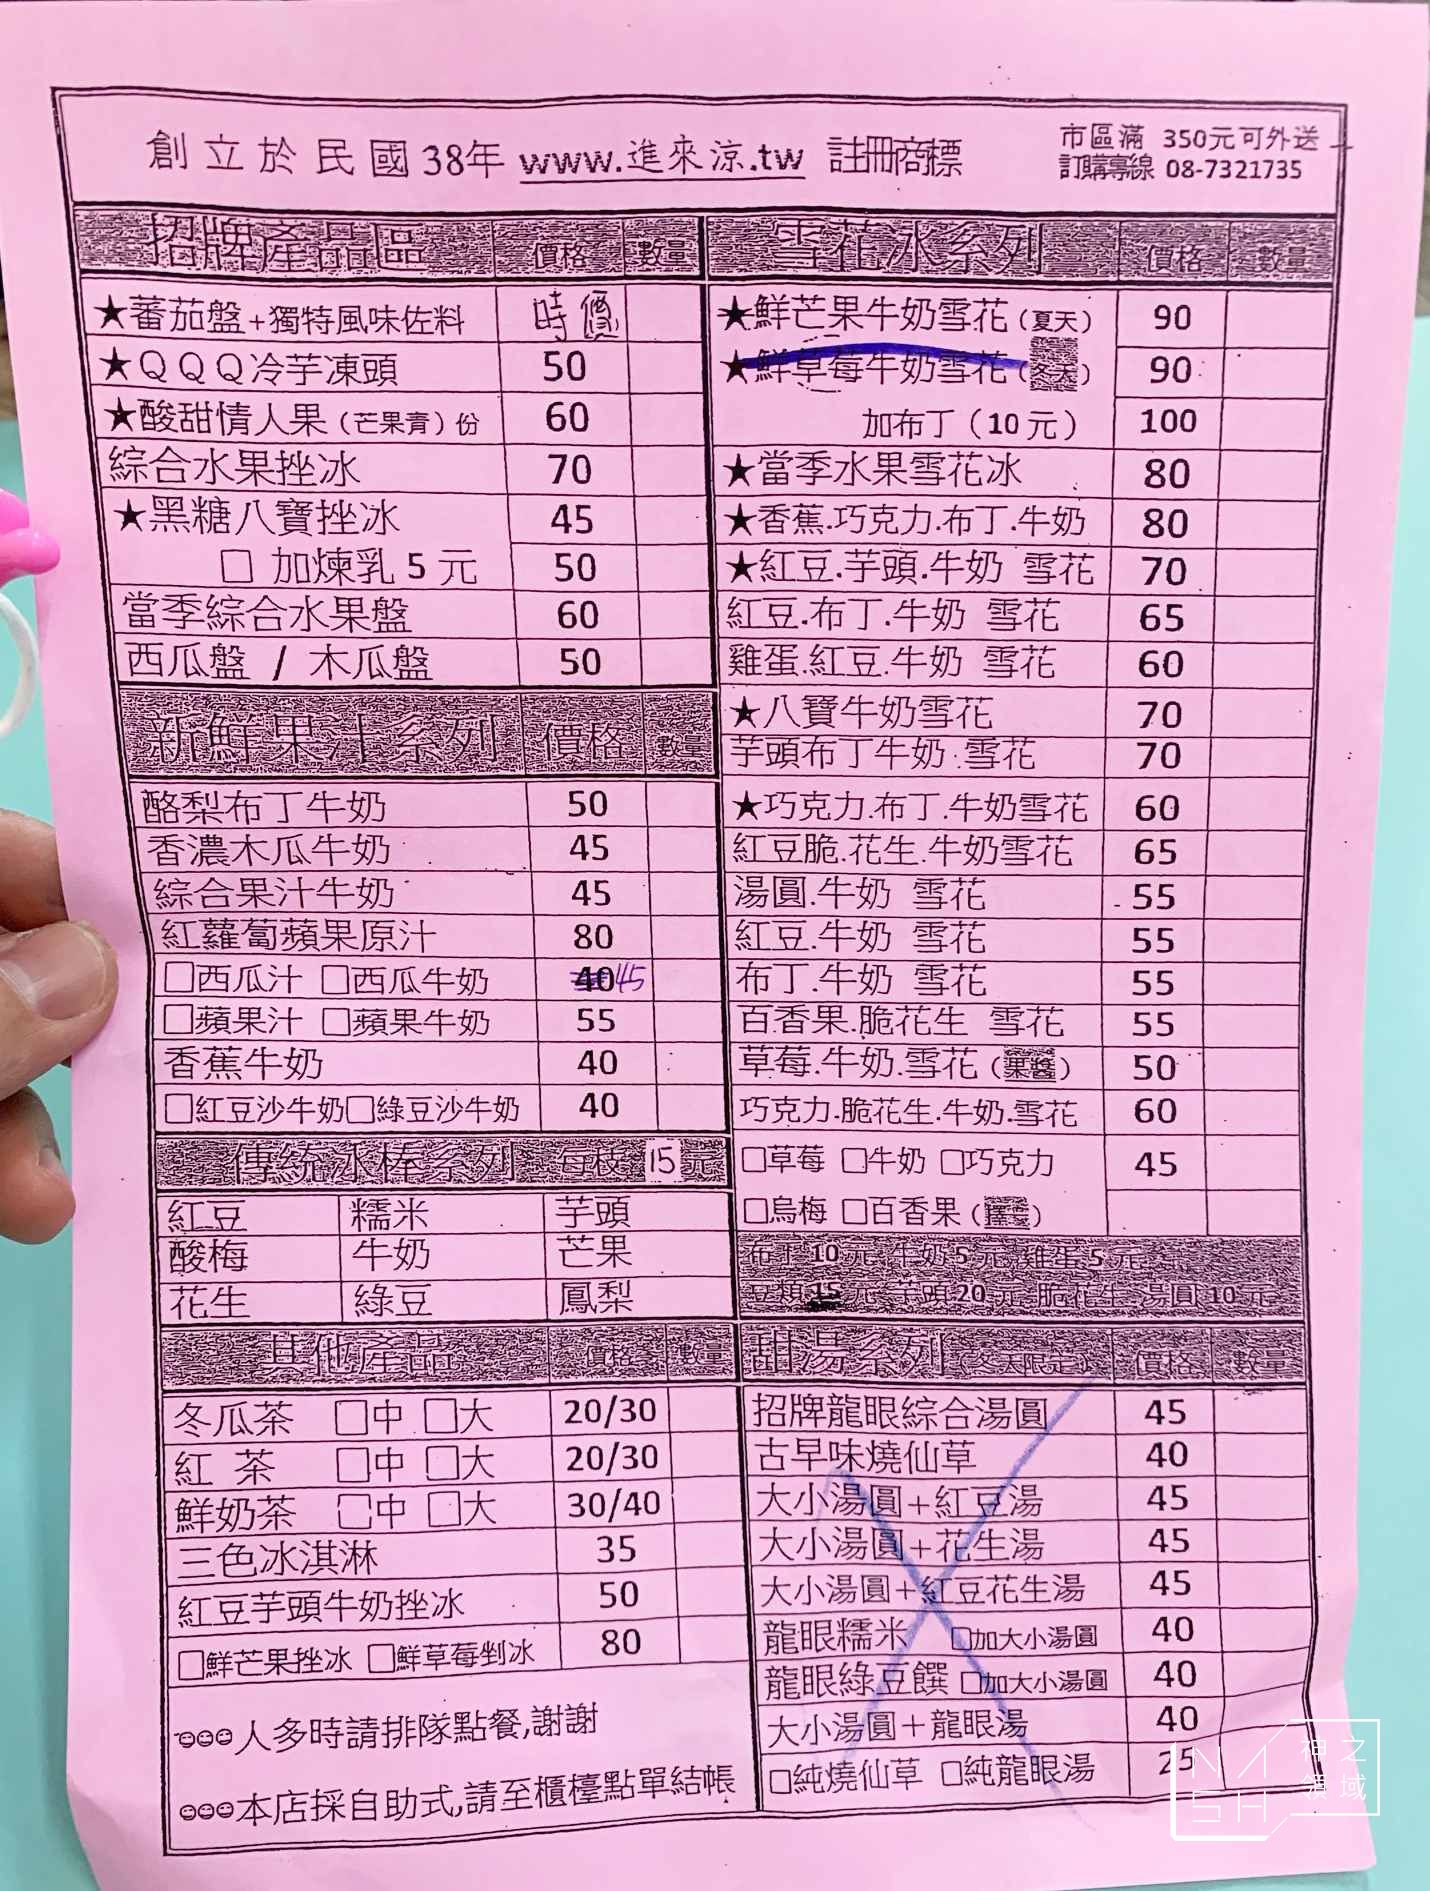 創立於民國38年 www.進來涼.tw 註冊商標
市區滿 350元可外送
訂購專線 08-7321735
招牌產品區 價格 數量
★蕃茄盤+獨特風味佐料 時價
★QQQ冷芋凍頭 50
★酸甜情人果(芒果青)份 60
綜合水果挫冰 70
★黑糖八寶挫冰 45
□ 加煉乳 5 元 50
當季綜合水果盤 60
西瓜盤 / 木瓜盤 50
新鮮果汁系列 價格 數量
酪梨布丁牛奶 50
香濃木瓜牛奶 45
綜合果汁牛奶 45
紅蘿蔔蘋果原汁 80
□西瓜汁 □西瓜牛奶 40 45
□蘋果汁 □蘋果牛奶 55
香蕉牛奶 40
□紅豆沙牛奶□綠豆沙牛奶 40
傳統冰棒系列 每枝 15 元
紅豆 糯米 芋頭
酸梅 牛奶 芒果
花生 綠豆 鳳梨
其他產品 價格 數量
冬瓜茶 □中 □大 20/30
紅 茶 □中 □大 20/30
鮮奶茶 □中 □大 30/40
三色冰淇淋 35
紅豆芋頭牛奶挫冰 50
□鮮芒果挫冰 □鮮草莓剉冰 80
☺☺☺人多時請排隊點餐,謝謝
☺☺☺本店採自助式,請至櫃檯點單結帳
雪花冰系列 價格 數量
★鮮芒果牛奶雪花(夏天) 90
★鮮草莓牛奶雪花(冬天) 90
加布丁(10 元) 100
★當季水果雪花冰 80
★香蕉.巧克力.布丁.牛奶 80
★紅豆.芋頭.牛奶 雪花 70
紅豆.布丁.牛奶 雪花 65
雞蛋.紅豆.牛奶 雪花 60
★八寶牛奶雪花 70
芋頭布丁牛奶 雪花 70
★巧克力.布丁.牛奶雪花 60
紅豆脆.花生.牛奶雪花 65
湯圓.牛奶 雪花 55
紅豆.牛奶 雪花 55
布丁.牛奶 雪花 55
百香果.脆花生 雪花 55
草莓.牛奶.雪花(果醬) 50
巧克力.脆花生.牛奶.雪花 60
□草莓 □牛奶 □巧克力 45
□烏梅 □百香果
布丁 10 元 牛奶 5 元 雞蛋 5 元
豆類 15 元 芋頭 20 元 脆花生 湯圓 10 元
甜湯系列(冬天限定) 價格 數量
招牌龍眼綜合湯圓 45
古早味燒仙草 40
大小湯圓+紅豆湯 45
大小湯圓+花生湯 45
大小湯圓+紅豆花生湯 45
龍眼糯米 □加大小湯圓 40
龍眼綠豆饌 □加大小湯圓 40
大小湯圓+龍眼湯 40
□純燒仙草 □純龍眼湯 25
NASH 神之領域